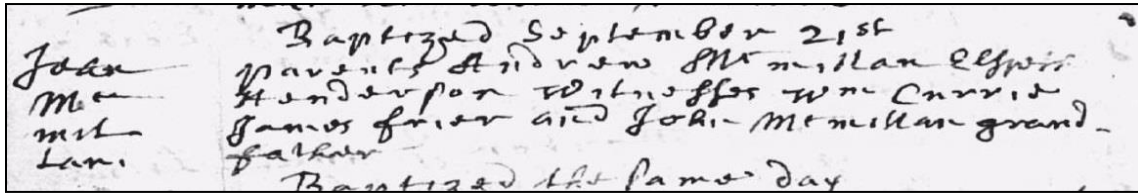 Baptized September 21st
Jean parents Andrew Mcmillan Elspeit
Mc Henderson Witnesses wm Currie
mil James frier and John Mcmillan grand-
lan. father
Baptized the same day